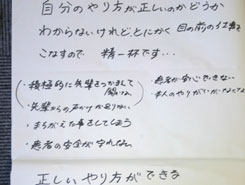 自分のやり方が正しいのかどうか
わからないけれどとにかく目の前の仕事を
こなすので 精一杯です…
・積極的に先輩をつかまえて
・先輩からの声かけが足りない
・まちがえた事をしてしまう
・患者の安全が守れない
・患者が安心できない
・本人のやりがいがなくなる
正しいやり方ができる